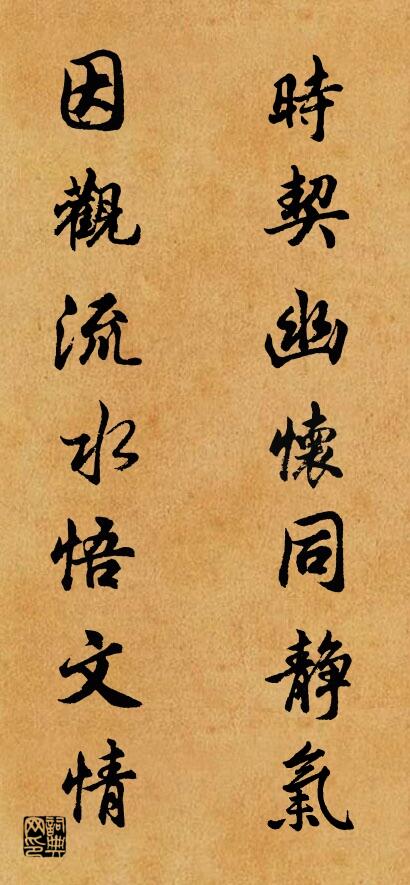 時契幽懷同静氣
因觀流水悟文情
詞典网印